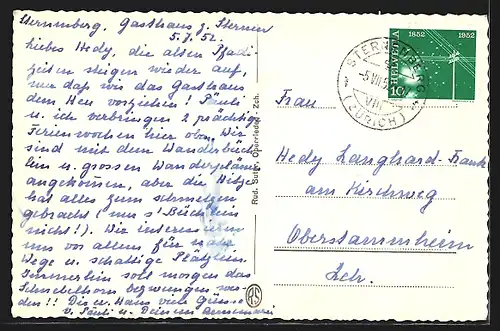 Sternenberg, Gasthaus z. Sternen
5.7.52.
Liebes Hedy, die alten Pfadi-
zeiten steigen wieder auf,
nur dass wir das Gasthaus
dem Heu vorziehen! Päuli
u. ich verbringen 2 prächtige
Ferienwochen hier oben. Wir
sind mit dem Wanderbüch-
lein u. grossen Wanderplänen
angekommen, aber die Hitze
hat alles zum schmelzen
gebracht (nur s'Büchlein
nicht!). Wir interessieren
uns vor allem für
Wege u. schattige Plätzlein.
Immerhin soll morgen das
Schnebelhorn bezwungen wer-
den!! Dir u. Hans viele Grüsse
v. Päuli u. Deinem Annemarie
Rud. Suter, Oberrieden - Zch.
RS
STERNENBERG
(ZÜRICH)
1852 1952
HELVETIA
10
Frau
Hedy Langhard-Frank
am Kirchweg
Oberstammheim
Zch.